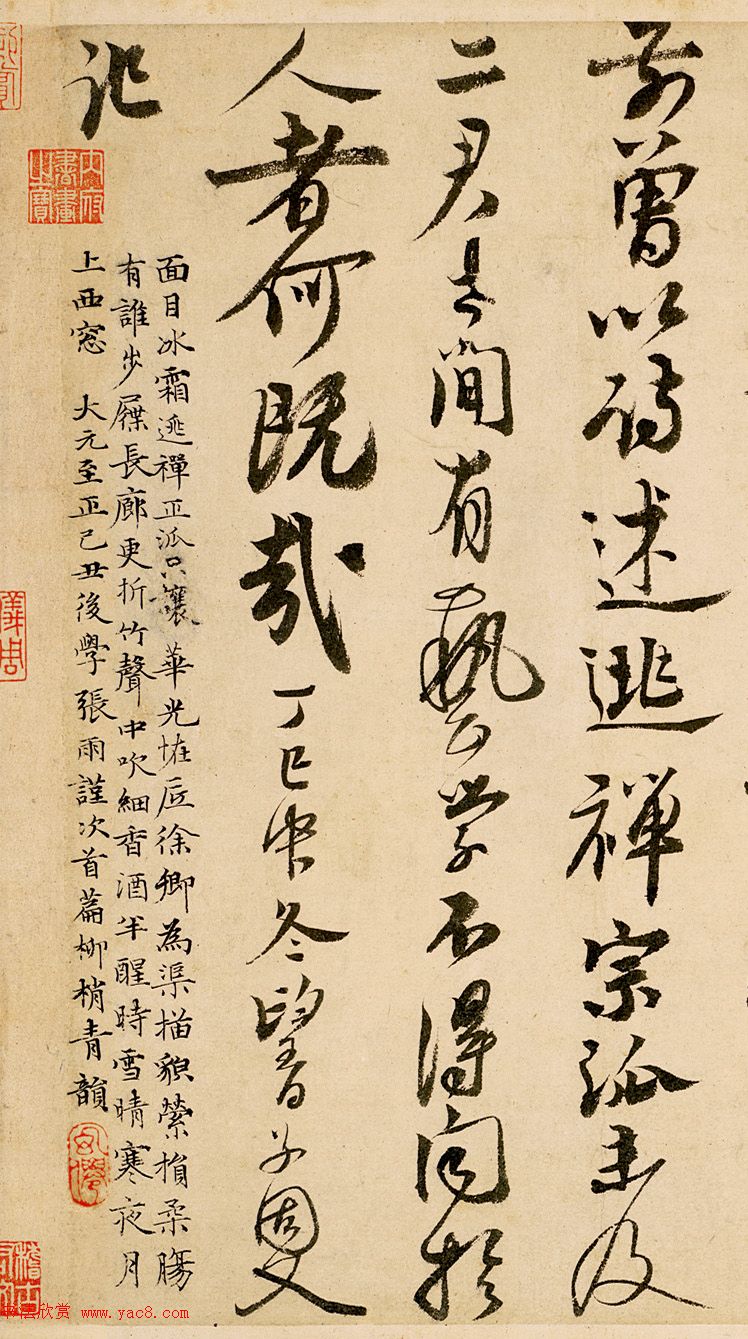 前曾以詩述逃禪宗派未及
二君是間有藝學不得聞於
人者何既哉丁巳中冬望日子固又
記
面目冰霜逃禪正派只讓華光怪底徐卿為渠描貌縈損柔腸
有誰步屧長廊更折竹聲中吹細香酒半醒時雪晴寒夜月
上西窓 大元至正己丑後學張雨謹次首篇柳梢青韻
内府書畫之寶
儀周
欣赏 www.yac8.com